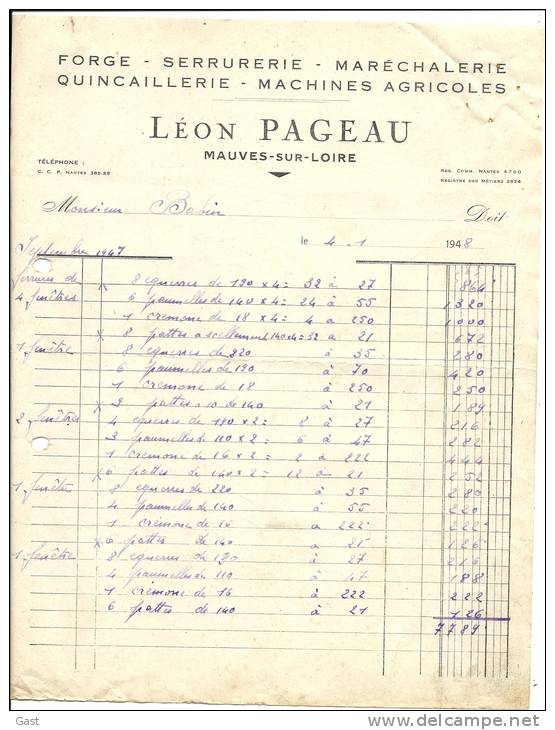 FORGE - SERRURERIE - MARÉCHALERIE
QUINCAILLERIE - MACHINES AGRICOLES
LÉON PAGEAU
MAUVES-SUR-LOIRE
TÉLÉPHONE :
C. C. P. NANTES 385-85
REG. COMM. NANTES 4760
REGISTRE DES MÉTIERS 2674
Monsieur Babin Doit
le 4.1 1948
Septembre 1947
Ferrures de 8 équerres de 190 x 4 = 32 à 27 864
4 fenêtres 6 paumelles de 140 x 4 = 24 à 55 1,320
1 crémone de 18 x 4 = 4 à 250 1000
x 8 pattes a scellement 140x4=32 à 21 672
1 fenêtre 8 équerres de 220 à 35 280
6 paumelles de 190 à 70 420
1 crémone de 18 à 250 250
x 9 pattes a 10 de 140 à 21 189
2 fenêtres 4 équerres de 190 x 2 = 8 à 27 216
3 paumelles de 110 x 2 = 6 à 47 282
1 crémone de 16 x 2 = 2 à 222 444
x 6 pattes de 140 x 2 = 12 à 21 252
1 fenêtre 8 équerres de 220 à 35 280
4 paumelles de 140 à 55 220
1 crémone de 16 a 222 222
x 6 pattes de 140 à 21 126
1 fenêtre 8 équerres de 190 à 27 216
4 paumelles de 110 à 47 188
1 crémone de 16 à 222 222
6 pattes de 140 à 21 126
7789
Gast
www.delcampe.net